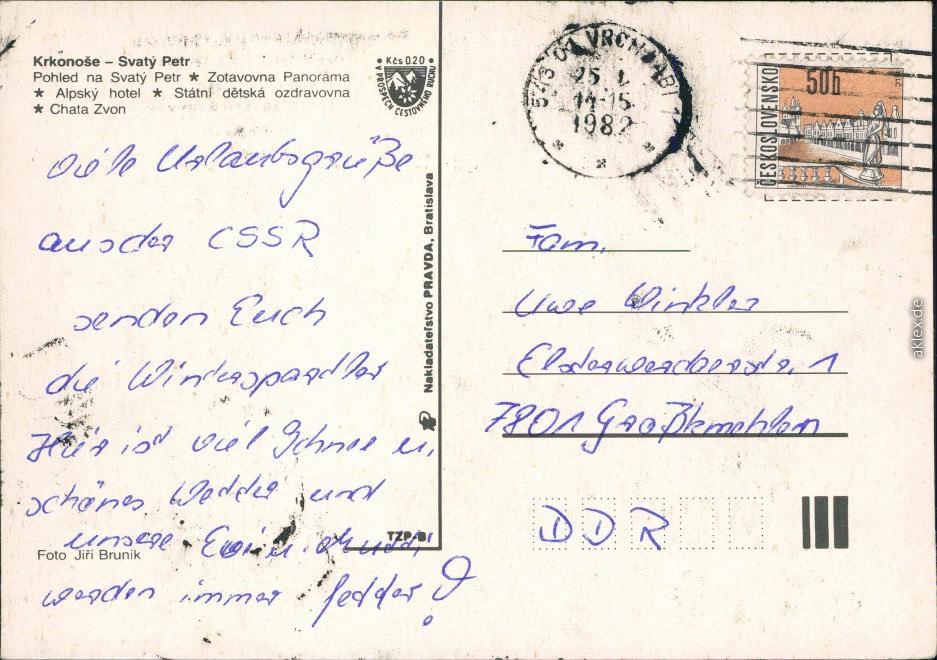 Krkonoše – Svatý Petr
Pohled na Svatý Petr ★ Zotavovna Panoráma
★ Alpský hotel ★ Státní dětská ozdravovna
★ Chata Zvon
Kčs 0.20
V PROSPĚCH CESTOVNÉHO RUCHU
viele Urlaubsgrüße
aus der CSSR
senden Euch
die
Hier ist viel Schnee u.
schönes Wedder und
unsere u.
werden immer fedder!
Foto Jiří Bruník
TZP-B
Nakladateľstvo PRAVDA, Bratislava
VRCHLABÍ 1
25.1.
14-15
1982
ČESKOSLOVENSKO
50h
Fam.
Uwe Winkler
Elsterwerdaerstr. 1
7801 Großkmehlen
DDR
aklex.de